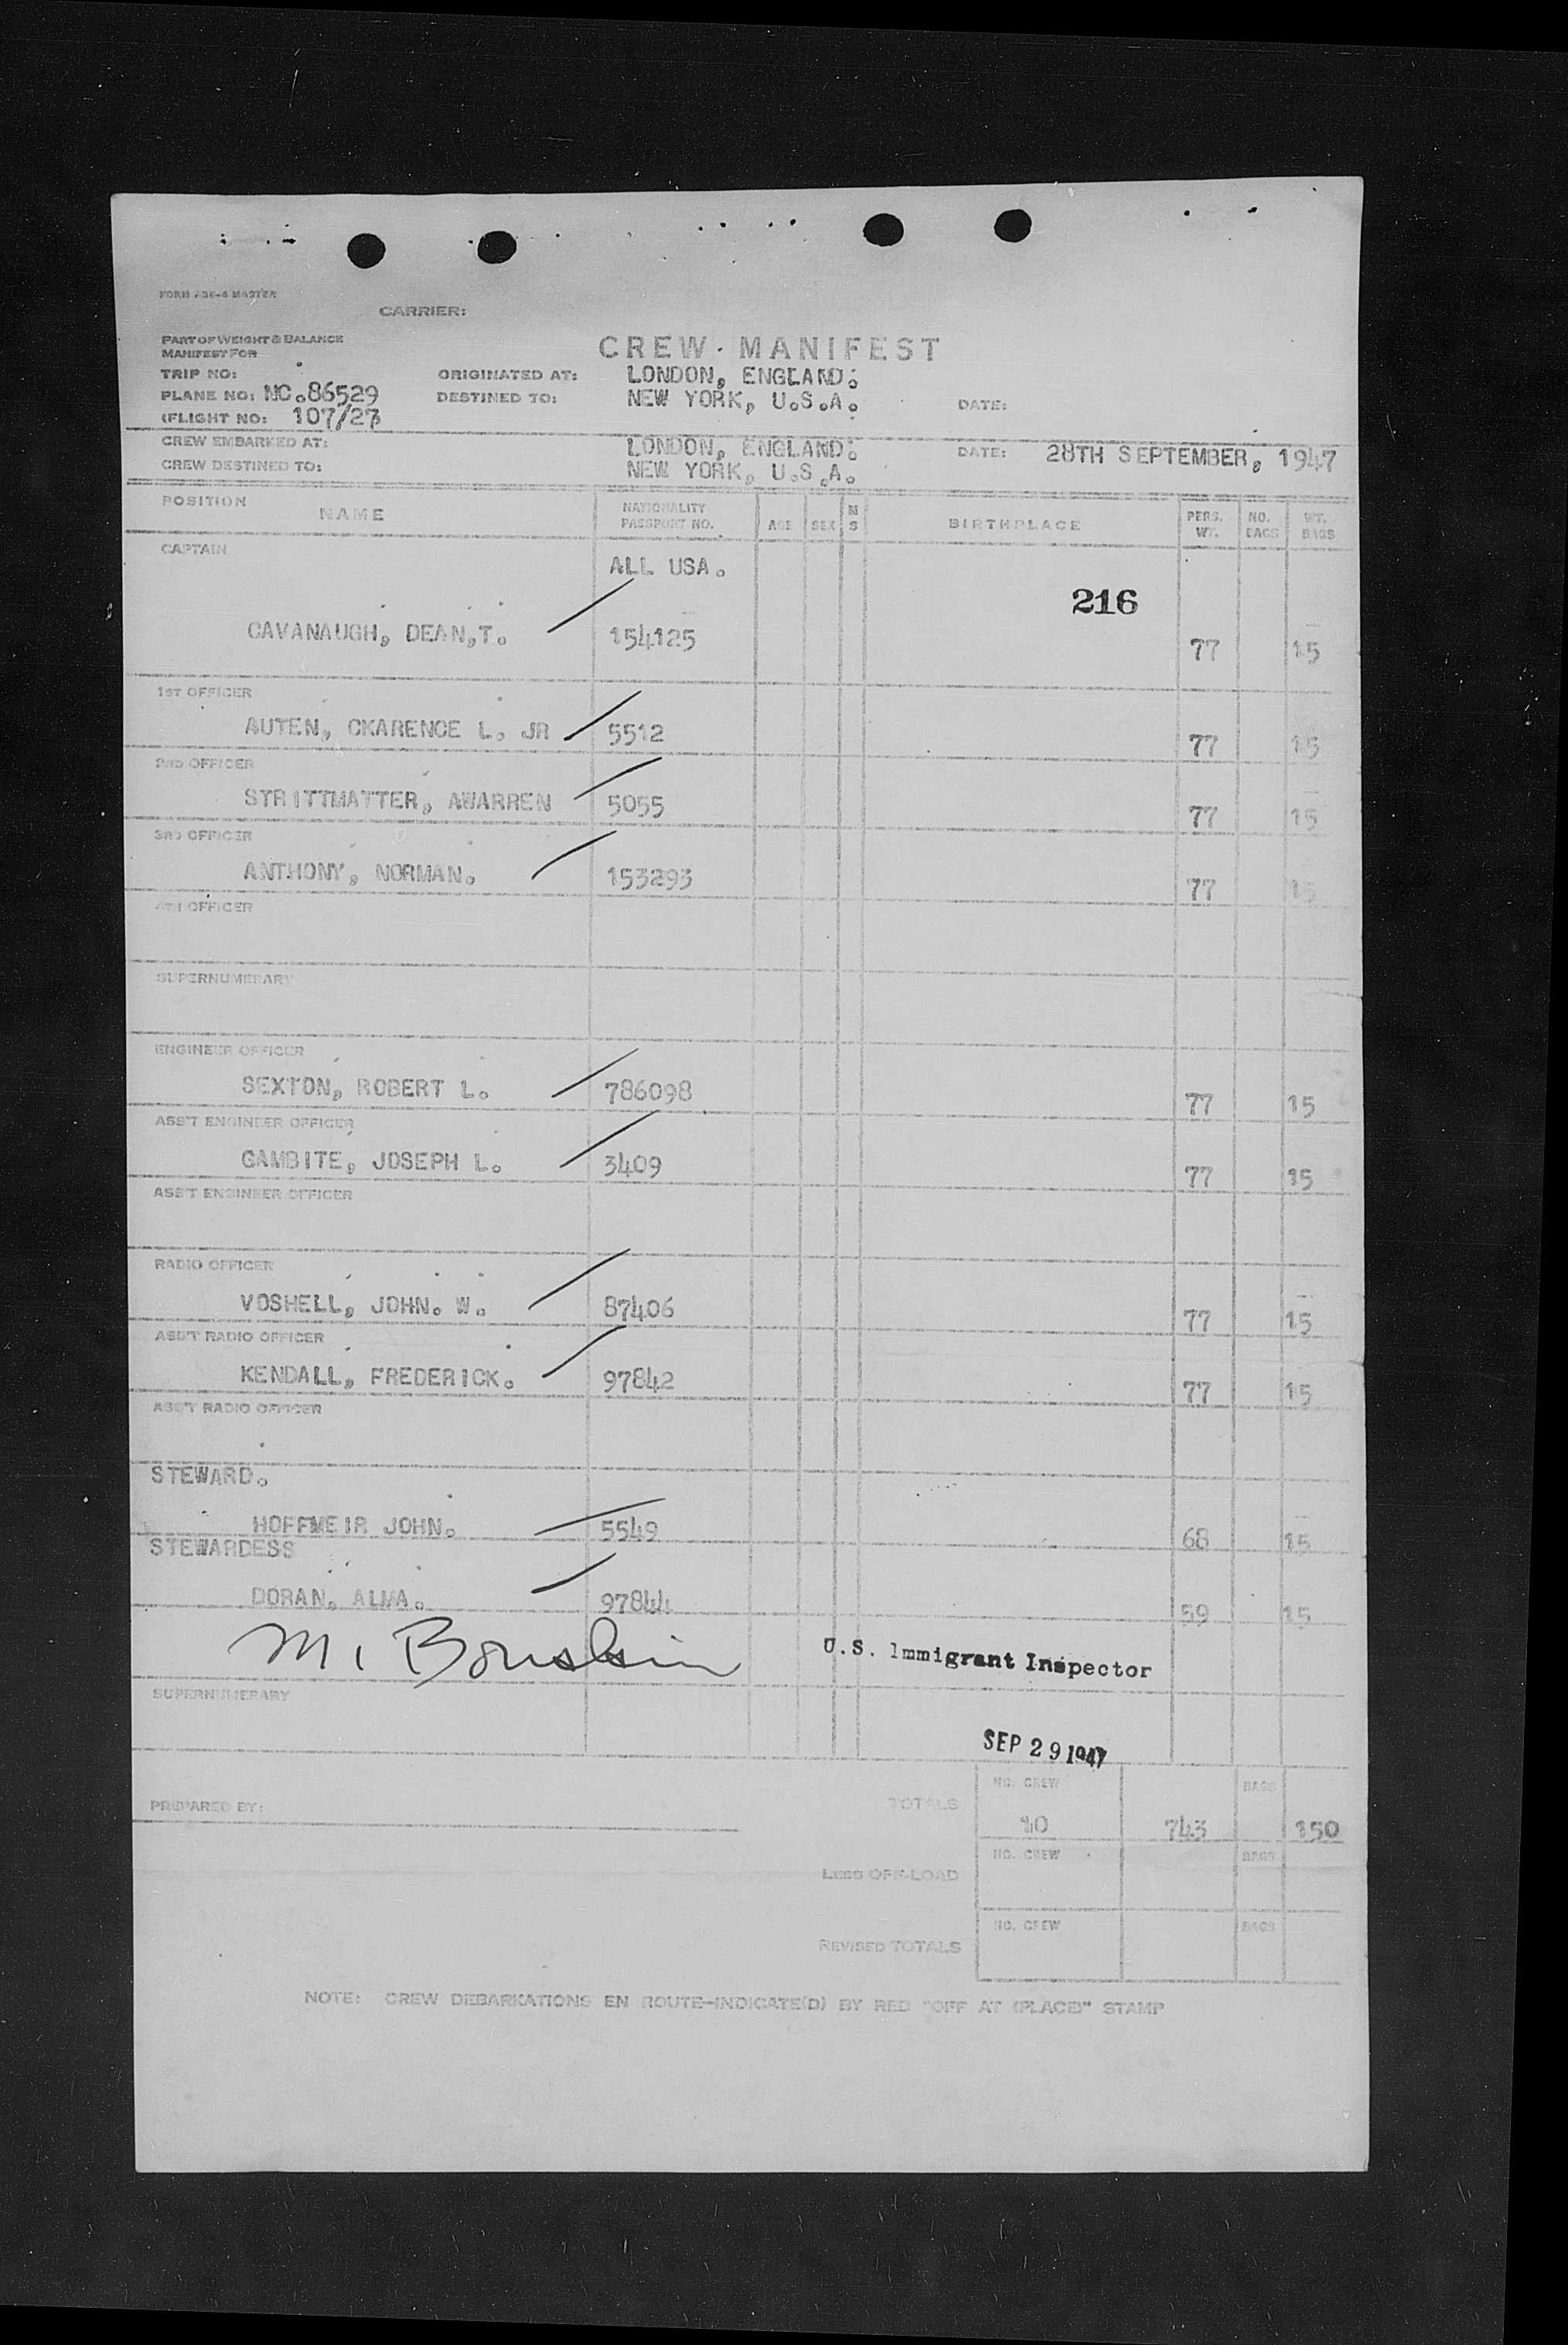 CARRIER:
PART OF WEIGHT & BALANCE
MANIFEST FOR
CREW MANIFEST
TRIP NO:
ORIGINATED AT: LONDON, ENGLAND.
PLANE NO: NC.86529
DESTINED TO: NEW YORK, U.S.A.
DATE:
(FLIGHT NO: 107/27
CREW EMBARKED AT: LONDON, ENGLAND.
DATE: 28TH SEPTEMBER, 1947
CREW DESTINED TO: NEW YORK, U.S.A.
POSITION NAME NATIONALITY PASSPORT NO. AGE SEX M S BIRTHPLACE PERS. WT. NO. BAGS WT. BAGS
CAPTAIN
ALL USA.
216
CAVANAUGH, DEAN,T. 154125 77 15
1ST OFFICER
AUTEN, CKARENCE L. JR 5512 77 15
2ND OFFICER
STRITTMATTER, AWARREN 5055 77 15
3RD OFFICER
ANTHONY, NORMAN. 153293 77 15
4TH OFFICER
SUPERNUMERARY
ENGINEER OFFICER
SEXTON, ROBERT L. 786098 77 15
ASS'T ENGINEER OFFICER
GAMBITE, JOSEPH L. 3409 77 15
ASS'T ENGINEER OFFICER
RADIO OFFICER
VOSHELL, JOHN. W. 87406 77 15
ASS'T RADIO OFFICER
KENDALL, FREDERICK. 97842 77 15
ASS'T RADIO OFFICER
STEWARD.
HOFFMEIR JOHN. 5549 68 15
STEWARDESS
DORAN, ALMA. 97844 59 15
M.
U.S. Immigrant Inspector
SUPERNUMERARY
SEP 29 1947
NO. CREW BAGS
PREPARED BY:
TOTALS 10 743 150
NO. CREW BAGS
LESS OFF-LOAD
NO. CREW BAGS
REVISED TOTALS
NOTE: CREW DEBARKATIONS EN ROUTE-INDICATE(D) BY RED "OFF AT (PLACE)" STAMP